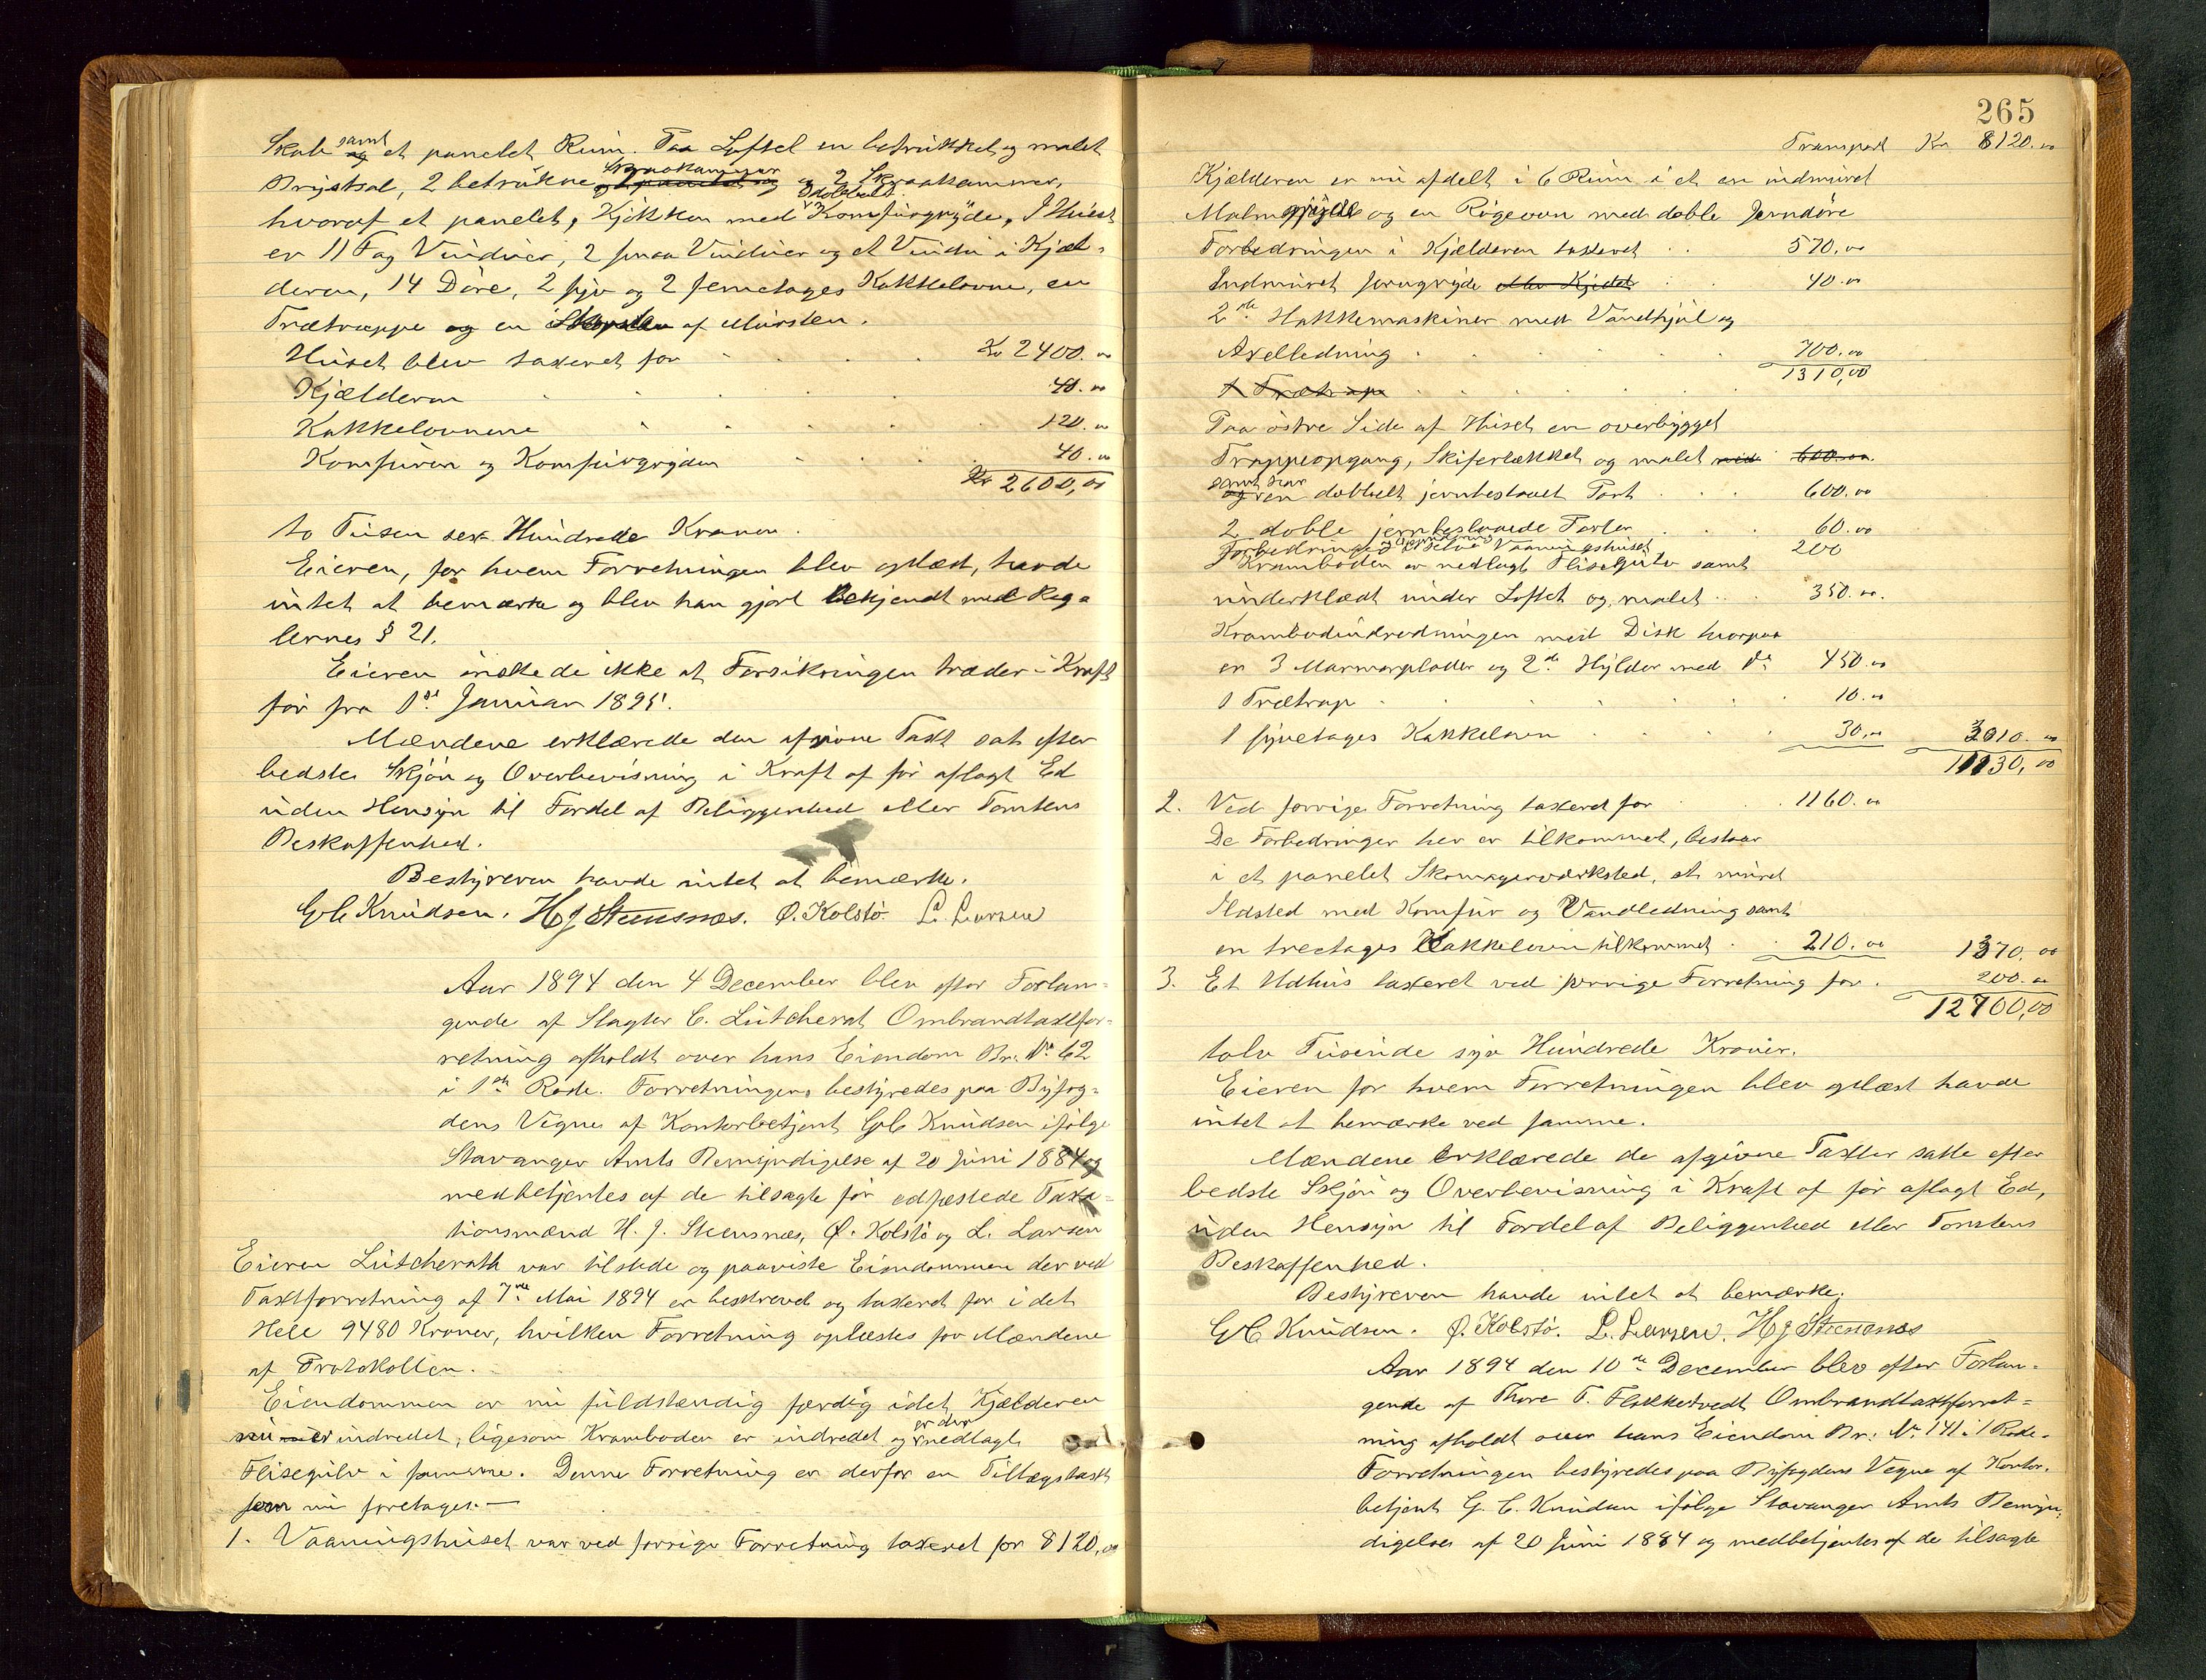 Skab samt et panelet Rum. Paa Loftet en betrukket og malet
Brystsal, 2 betrukne Skraakammer og 2 Skraakammer,
hvoraf et panelet, Kjökken med Skolbelt Komfurgryde, I Huset
er 11 Fag Vinduer, 2 smaa Vinduer og et Vindu i Kjæl-
deren, 14 Döre, 2 syv og 2 femetages Kakkelovne, en
Trætrappe og en Skorsten af Mursten.
Huset blev taxeret for Kr 2400.00
Kjælderen 40.00
Kakkelovnene 120.00
Komfuren og Komfurgryden 40.00
Kr 2600,00
to Tusen sex Hundrede Kroner.
Eieren, for hvem Forretningen blev oplæst, havde
intet at bemærke og blev han gjort bekjendt med Reg-
lernes § 21.
Eieren önskede ikke at Forsikringen træder i Kraft
för fra 1ste Januar 1895.
Mændene erklærede den afgivne Taxt sat efter
bedste Skjön og Overbevisning i Kraft af för aflagt Ed
uden Hensyn til Fordel af Beliggenhed eller Tomtens
Beskaffenhed.
Bestyreren havde intet at bemærke.
G C Knudsen. H J Steensnæs. O. Kolstö. L. Larsen
Aar 1894 den 4 December blev efter Forlan-
gende af Slagter C. Lütcherath Ombrandtaxtfor-
retning afholdt over hans Eiendom Br. No 62
i 1ste Rode. Forretningen bestyredes paa Byfog-
dens Vegne af Kontorbetjent G C Knudsen ifölge
Stavanger Amts Bemyndigelse af 20 Juni 1884 og
medbetjentes af de tilsagte för edfæstede Taxa-
tionsmænd H. J. Steensnæs, O. Kolstö og L. Larsen
Eieren Lütcherath var tilstede og paaviste Eiendommen der ved
Taxtforretning af 7de Mai 1894 er beskrevet og taxeret for i det
Hele 9480 Kroner, hvilken Forretning oplæstes for Mændene
af Protokollen.
Eiendommen er nu fuldstændig færdig idet Kjælderen
nu er indredet, ligesom Kramboden er indredet og er der nedlagt
Flisegulv i samme. Denne Forretning er derfor en Tillægstaxt
som nu foretages.—
1. Vaaningshuset var ved forrige Forretning taxeret for 8120,00
265
Transport Kr 8120.00
Kjælderen er nu afdelt i 6 Rum i et en indmuret
Malmgryde og en Rögeovn med doble Jerndöre
Forbedringen i Kjælderen taxeret 570,00
Indmuret Jerngryde eller Kjedel 40.00
2de Hakkemaskiner med Vandhjul og
Axelledning 700.00
1310,00
1 Trætrap
Paa östre Side af Huset en overbygget
Trappeopgang, Skifertækket og malet med 600.00
samt har og en dobbelt jernbeslaaet Port 600.00
2 doble jernbeslaaede Porter 60.00
Forbedringer i selve Vaaningshuset 200
I Kramboden er nedlagt Flisegulv samt
underklædt under Loftet og malet 350.00.
Krambodindredningen med Disk hvorpaa
er 3 Marmorplader og 2de Hylder med Do 450.00
1 Trætrap 10.00
1 syvetages Kakkelovn 30,00 3010.00
11130,00
2. Ved forrige Forretning taxeret for 1160.00
De Forbedringer her er tilkommet, bestaar
i et panelet Skomagerværksted, et muret
Ildsted med Komfur og Vandledning samt
en treetages Kakkelovn tilkommet 210.00 1370.00
3. Et Udhus taxeret ved forrige Forretning for 200.00
12700,00
tolv Tusinde syv Hundrede Kroner.
Eieren for hvem Forretningen blev oplæst havde
intet at bemærke ved samme.
Mændene erklærede de afgivne Taxter satte efter
bedste Skjön og Overbevisning i Kraft af för aflagt Ed,
uden Hensyn til Fordel af Beliggenhed eller Tomtens
Beskaffenhed.
Bestyreren havde intet at bemærke.
G C Knudsen. O. Kolstö. L. Larsen. H J Steensnæs
Aar 1894 den 10de December blev efter Forlan-
gende af Thore T. Flikketvedt Ombrandtaxtforret-
ning afholdt over hans Eiendom Br. No 141 i 1 Rode.
Forretningen bestyredes paa Byfogdens Vegne af Kontor-
betjent G. C. Knudsen ifölge Stavanger Amts Bemyn-
digelse af 20 Juni 1884 og medbetjentes af de tilsagte